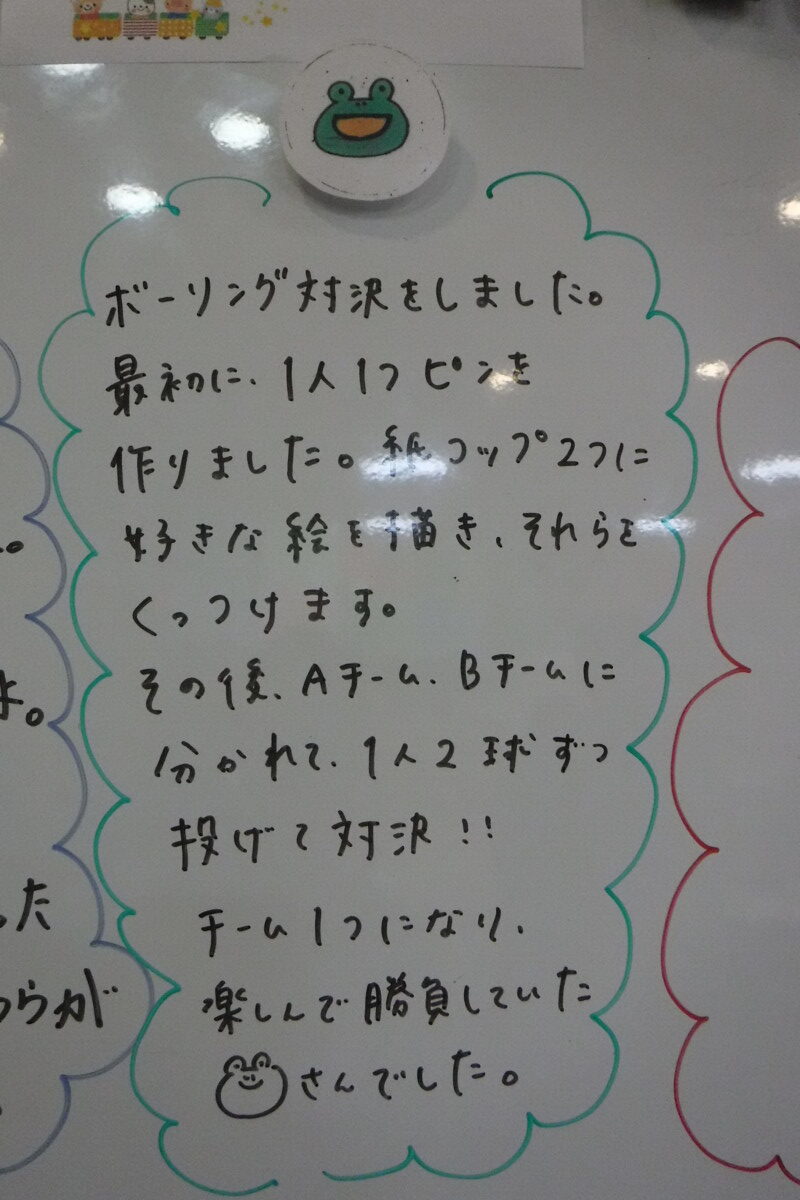 ボーリング対決をしました。
最初に、1人1つピンを
作りました。紙コップ2つに
好きな絵を描き、それらを
くっつけます。
その後、Aチーム、Bチームに
分かれて、1人2球ずつ
投げて対決!!
チーム1つになり、
楽しんで勝負していた
さんでした。
。
す。
た
らが